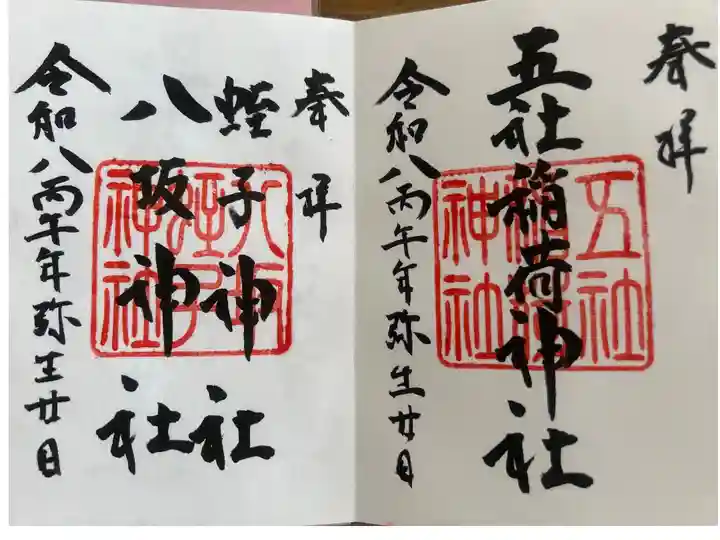 奉拝
五社稲荷神社
五社
稲荷
神社
令和八丙午年弥生廿日
奉拝
蛭子神社
八坂神社
八坂
蛭子
神社
令和八丙午年弥生廿日